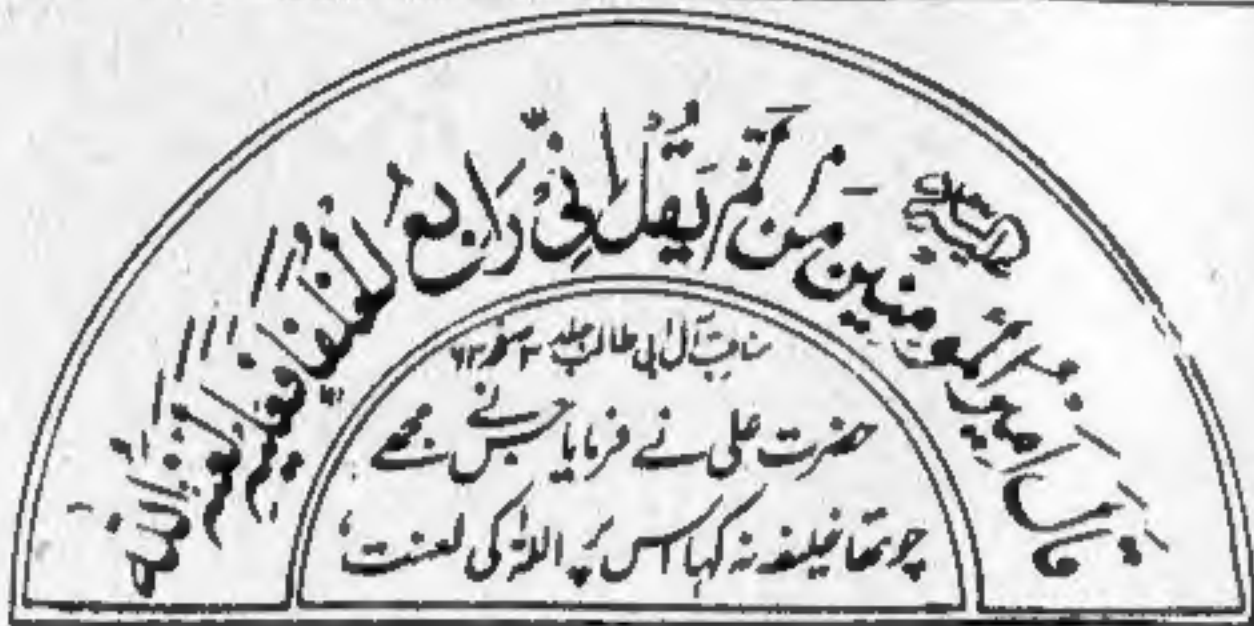 قَالَ اَمِیْرُ الْمُؤْمِنِیْنَ عَلَیْہِ السَّلَام مَنْ لَّمْ یَقُلْ اِنِّیْ رَابِعُ الْخُلَفَاءِ فَعَلَیْہِ لَعْنَۃُ اللّٰہِ
مناقب آل ابی طالب جلد ۳ صفحہ ۶۳
حضرت علی نے فرمایا جس نے مجھے
چوتھا خلیفہ نہ کہا اس پر اللہ کی لعنت